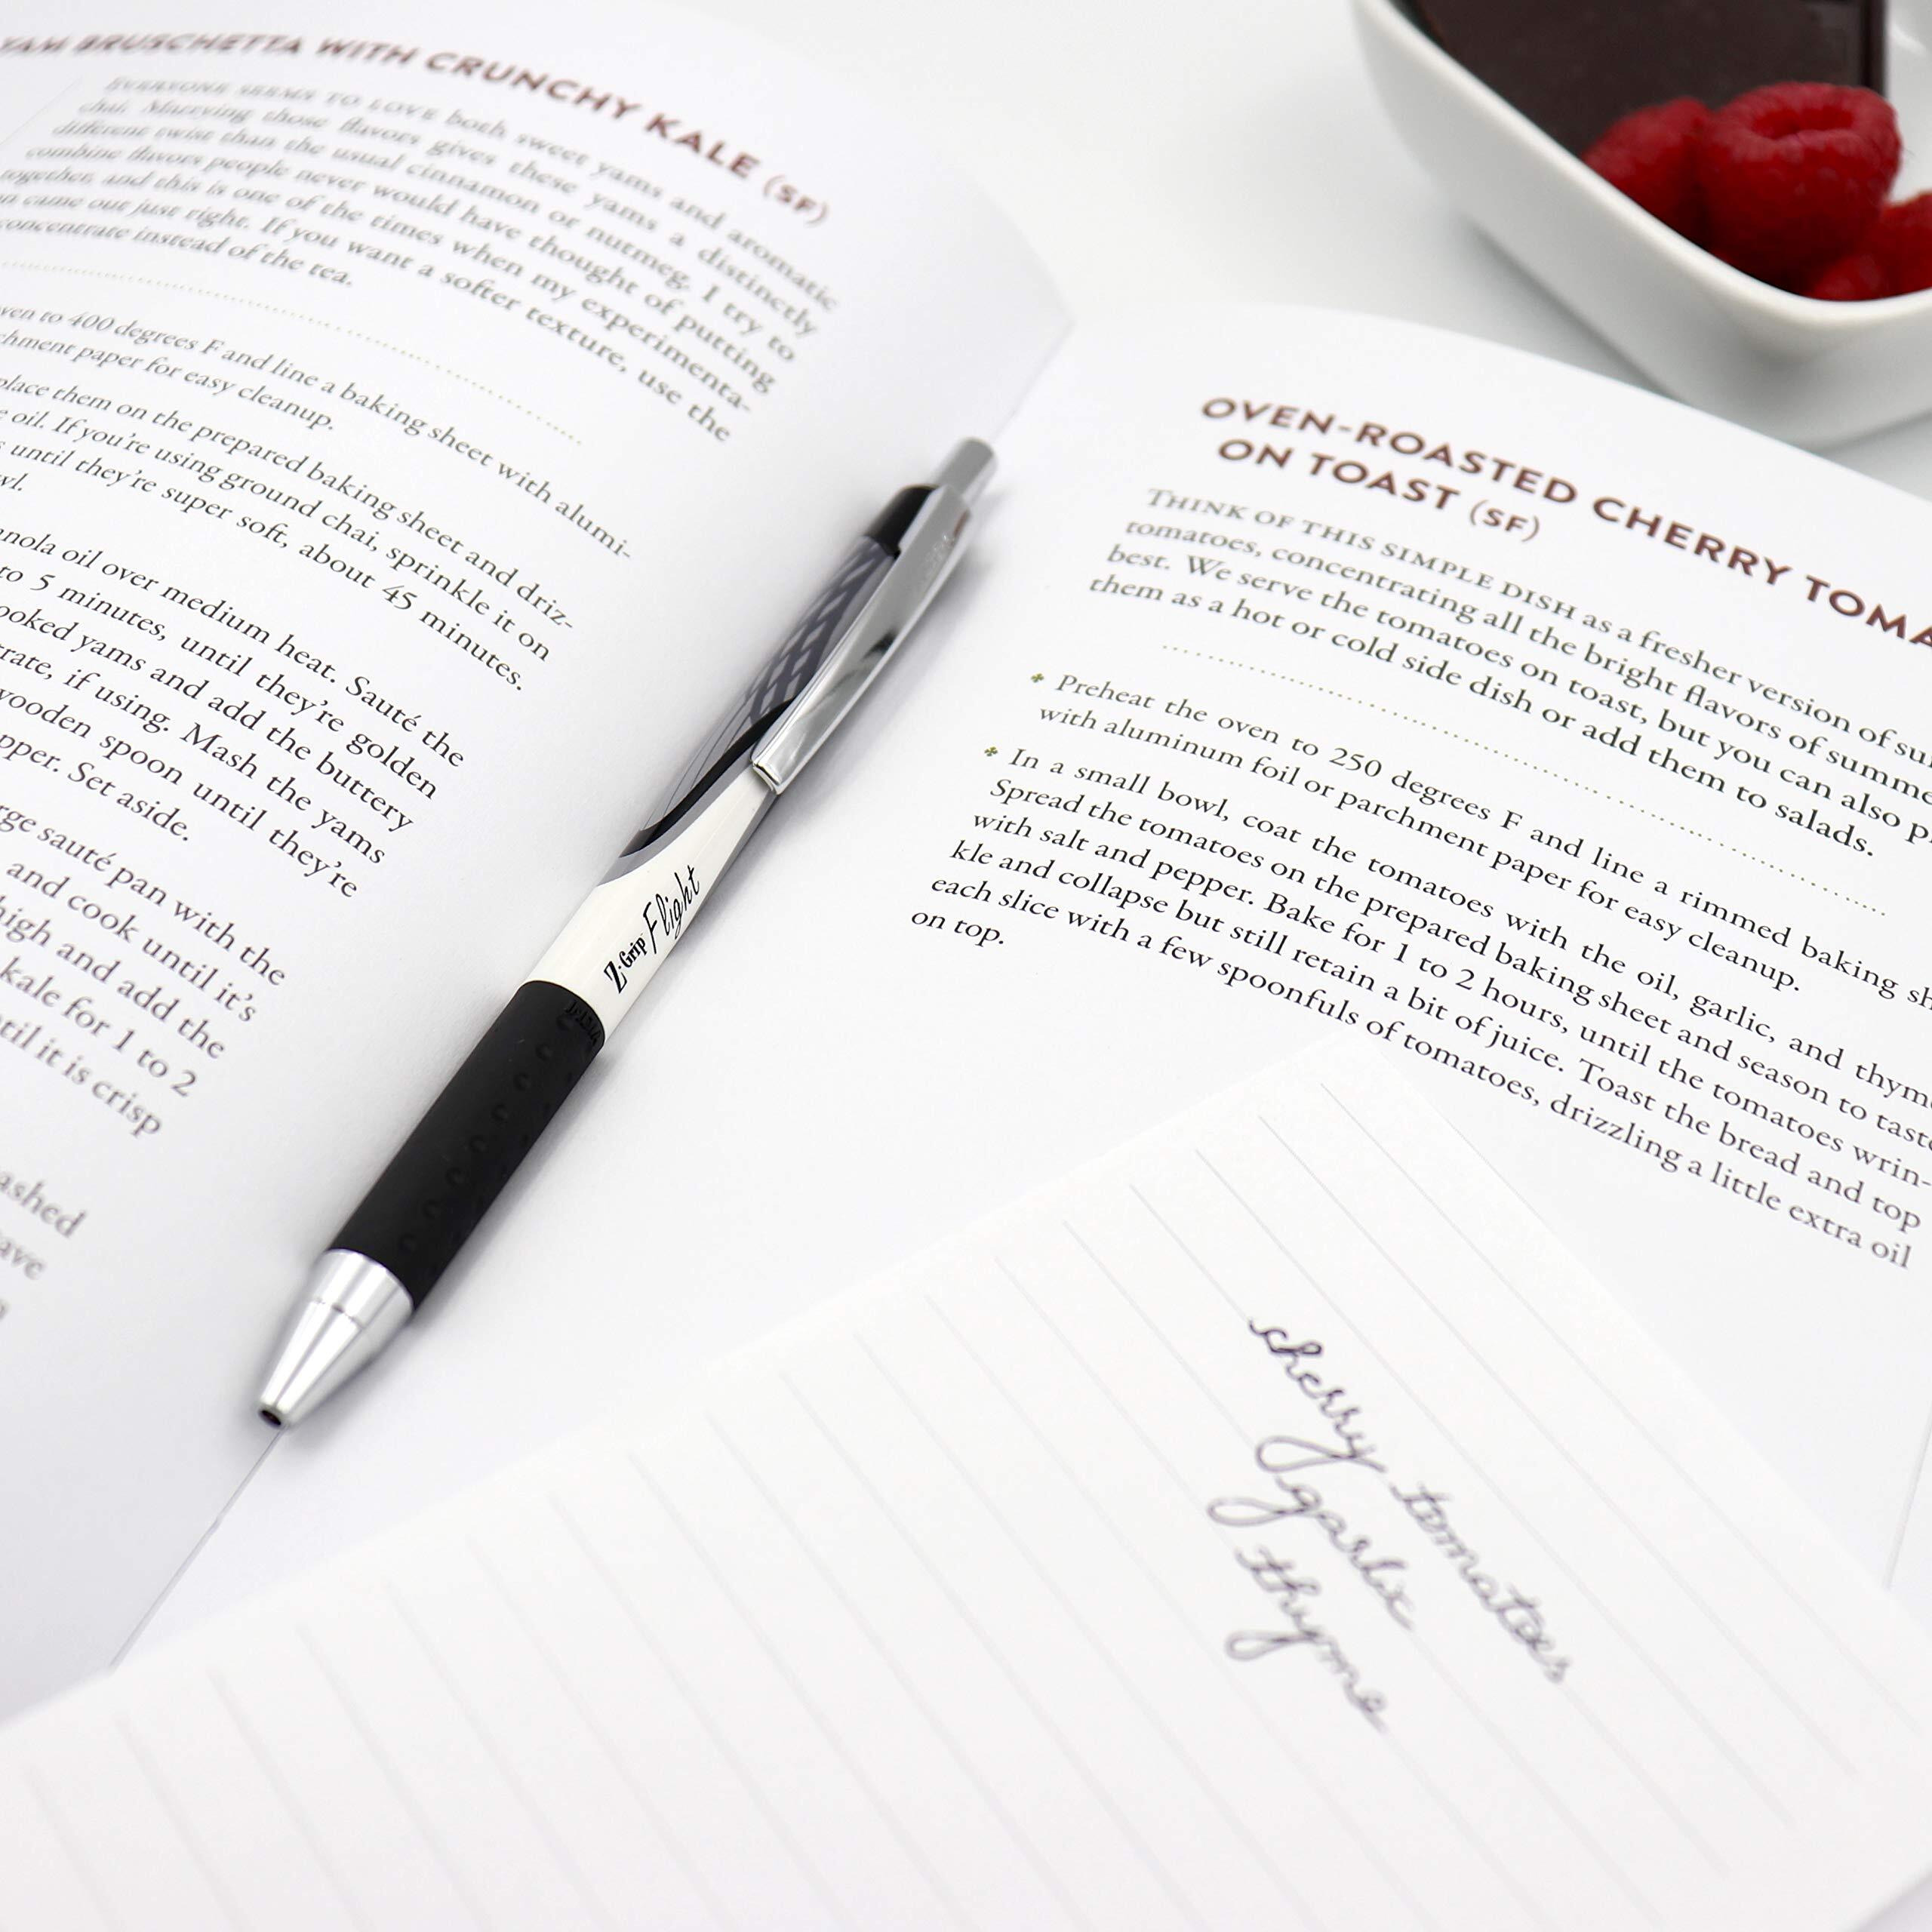 YAM BRUSCHETTA WITH CRUNCHY KALE (SF)
EVERYONE SEEMS TO LOVE both sweet yams and aromatic
chai. Marrying those flavors gives these yams a distinctly
different twist than the usual cinnamon or nutmeg. I try to
combine flavors people never would have thought of putting
together, and this is one of the times when my experimenta-
came out just right. If you want a softer texture, use the
concentrate instead of the tea.
to 400 degrees F and line a baking sheet with alumi-
paper for easy cleanup.
place them on the prepared baking sheet and driz-
oil. If you're using ground chai, sprinkle it on
until they're super soft, about 45 minutes.
oil over medium heat. Sauté the
to 5 minutes, until they're golden
yams and add the buttery
if using. Mash the yams
spoon until they're
Set aside.
sauté pan with the
and cook until it's
high and add the
kale for 1 to 2
it is crisp
Z-Grip Flight
OVEN-ROASTED CHERRY
ON TOAST (SF)
THINK OF THIS SIMPLE DISH as a fresher version of
tomatoes, concentrating all the bright flavors of
best. We serve the tomatoes on toast, but you can also
them as a hot or cold side dish or add them to salads.
Preheat the oven to 250 degrees F and line a rimmed baking
with aluminum foil or parchment paper for easy cleanup.
In a small bowl, coat the tomatoes with the oil, garlic, and
Spread the tomatoes on the prepared baking sheet and season to
with salt and pepper. Bake for 1 to 2 hours, until the tomatoes wrin-
kle and collapse but still retain a bit of juice. Toast the bread and top
each slice with a few spoonfuls of tomatoes, drizzling a little extra oil
on top.
cherry tomatoes
garlic
thyme